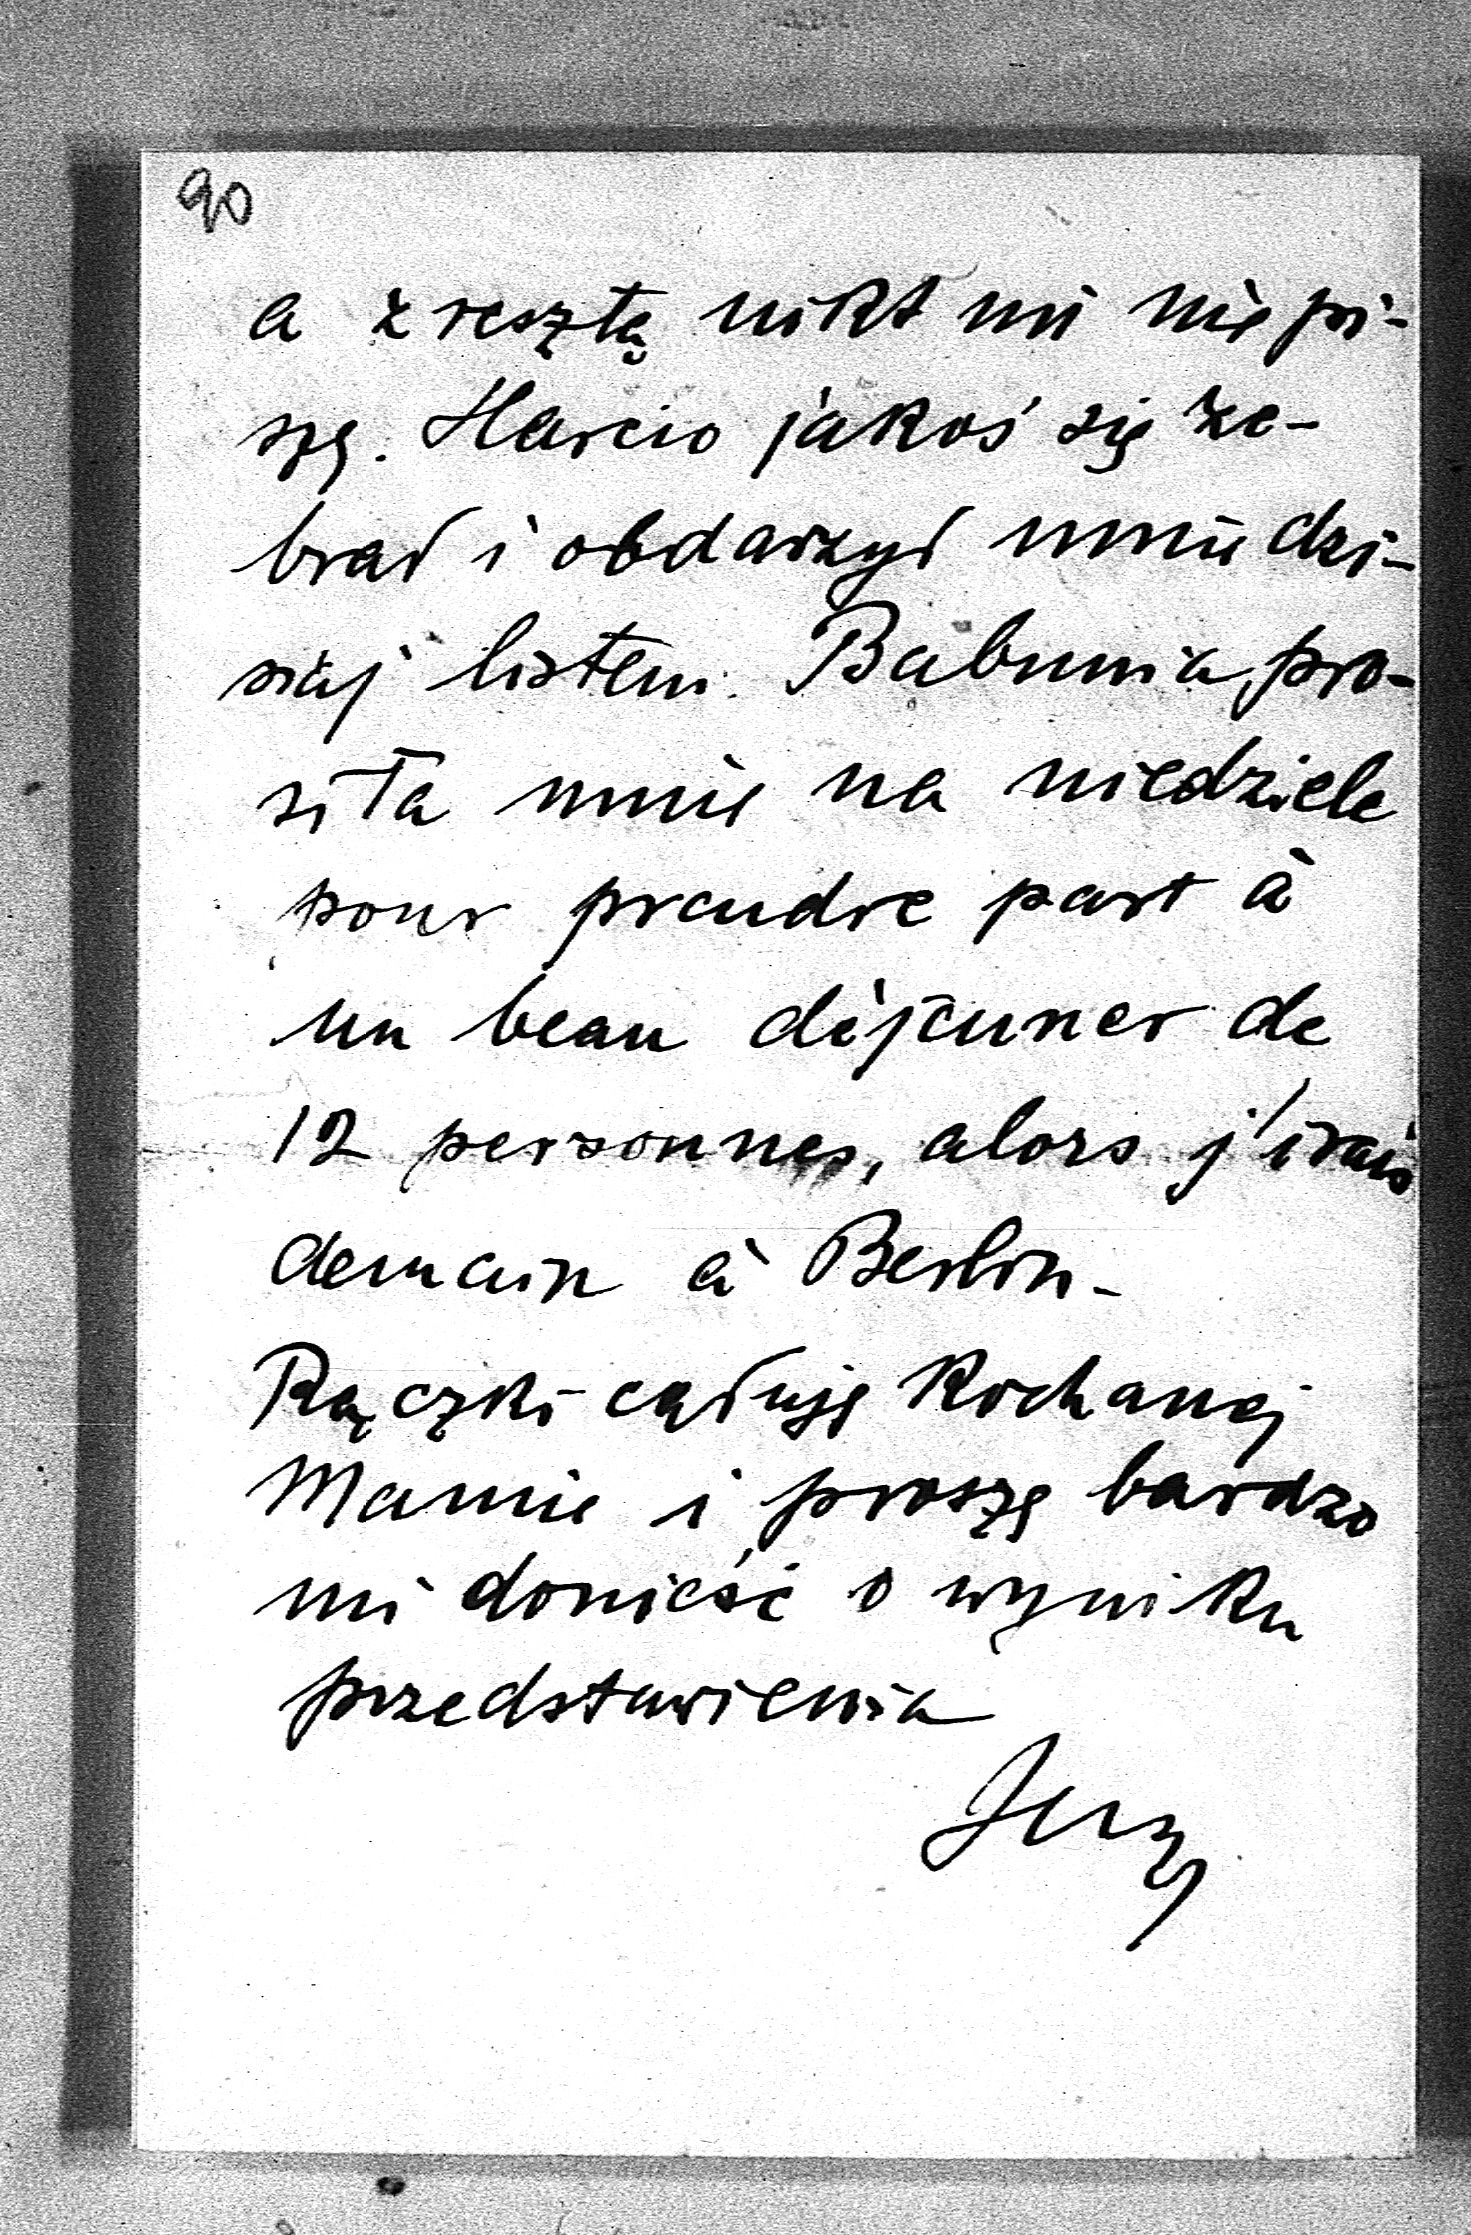 90
a zresztą nikt mi nie pi-
szę. Harcio jakoś się ze-
brał i obdarzył mnie dzi-
siaj listem. Babunia pro-
siła mnie na niedziele
pour prendre part à
un beau déjeuner de
12 personnes, alors j'irais
demain à Berlin -
Rączki cąłuję Kochanej
Mamie i proszę bardzo
mi donieść o wyniku
przedstawienia
Jerzy